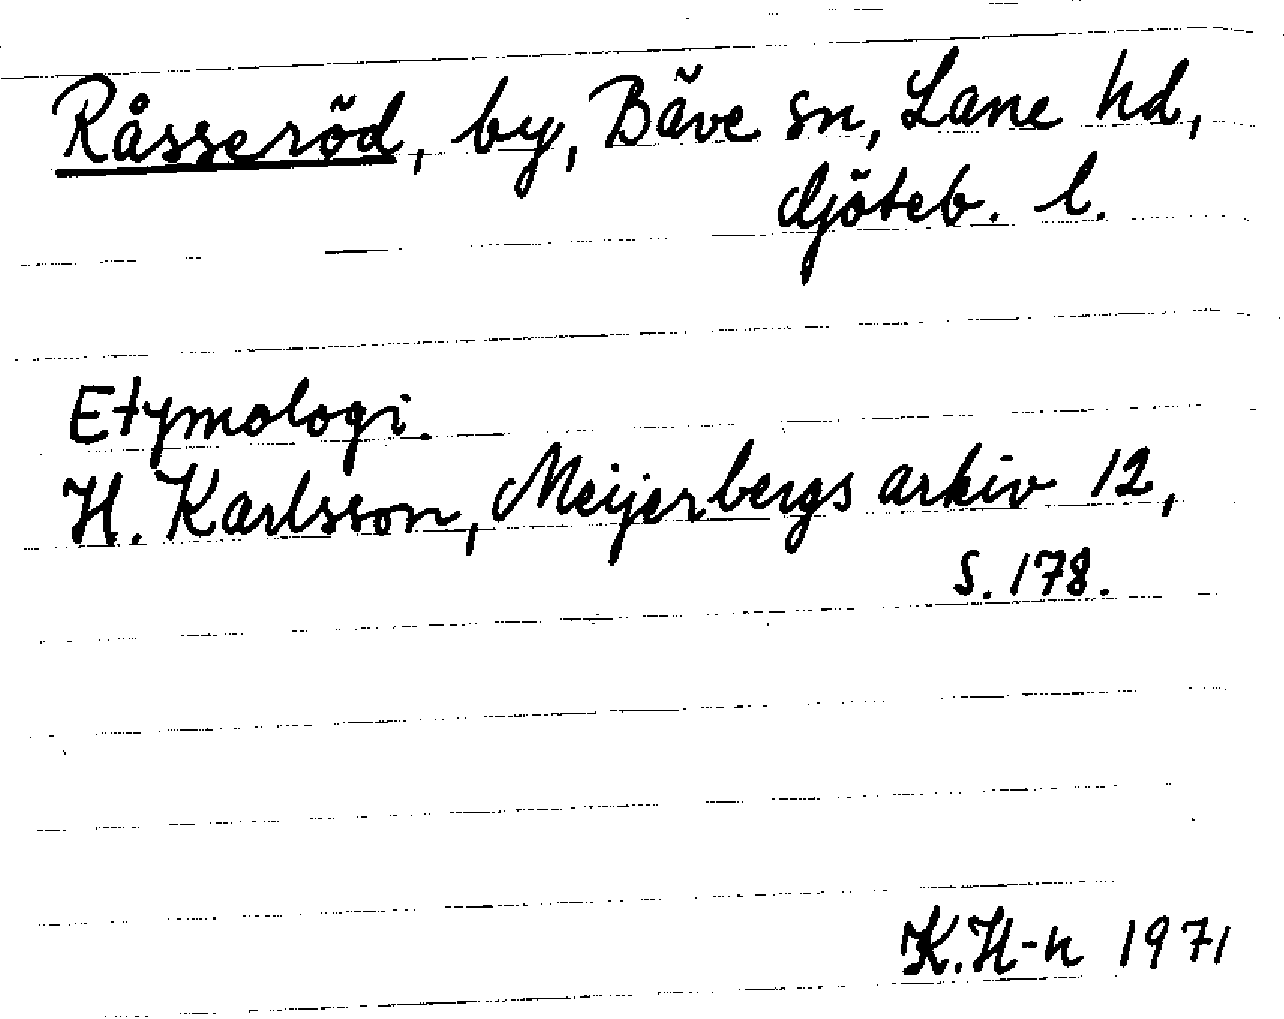 Råsseröd, by, Bäve sn, Lane hd,
Göteb. l.
Etymologi.
H. Karlsson, Meijerbergs arkiv 12,
s. 178.
K.H-n 1971